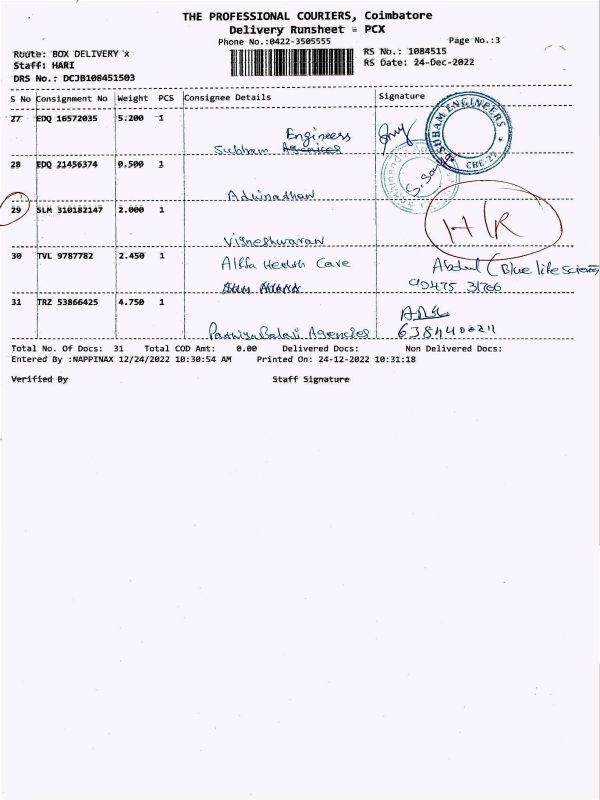 THE PROFESSIONAL COURIERS, Coimbatore
Delivery Runsheet = PCX
Phone No.:0422-3505555
Page No.:3
Route: BOX DELIVERY x
RS No.: 1084515
Staff: HARI
RS Date: 24-Dec-2022
DRS No.: DCJB108451503
S No Consignment No Weight PCS Consignee Details Signature
27 EDQ 16572035 5.200 1
Engineers
Subham
SUBAM ENGINEERS
CBE-27
28 EDQ 21456374 0.500 1
29 SLM 310182147 2.000 1
H/R
Vigneshwaran
30 TVL 9787782 2.450 1
Alfa Health Care
Abdul (Blue life Science
31 TRZ 53866425 4.750 1
Agencies
Total No. Of Docs: 31 Total COD Amt: 0.00 Delivered Docs: Non Delivered Docs:
Entered By :NAPPINAX 12/24/2022 10:30:54 AM Printed On: 24-12-2022 10:31:18
Verified By Staff Signature